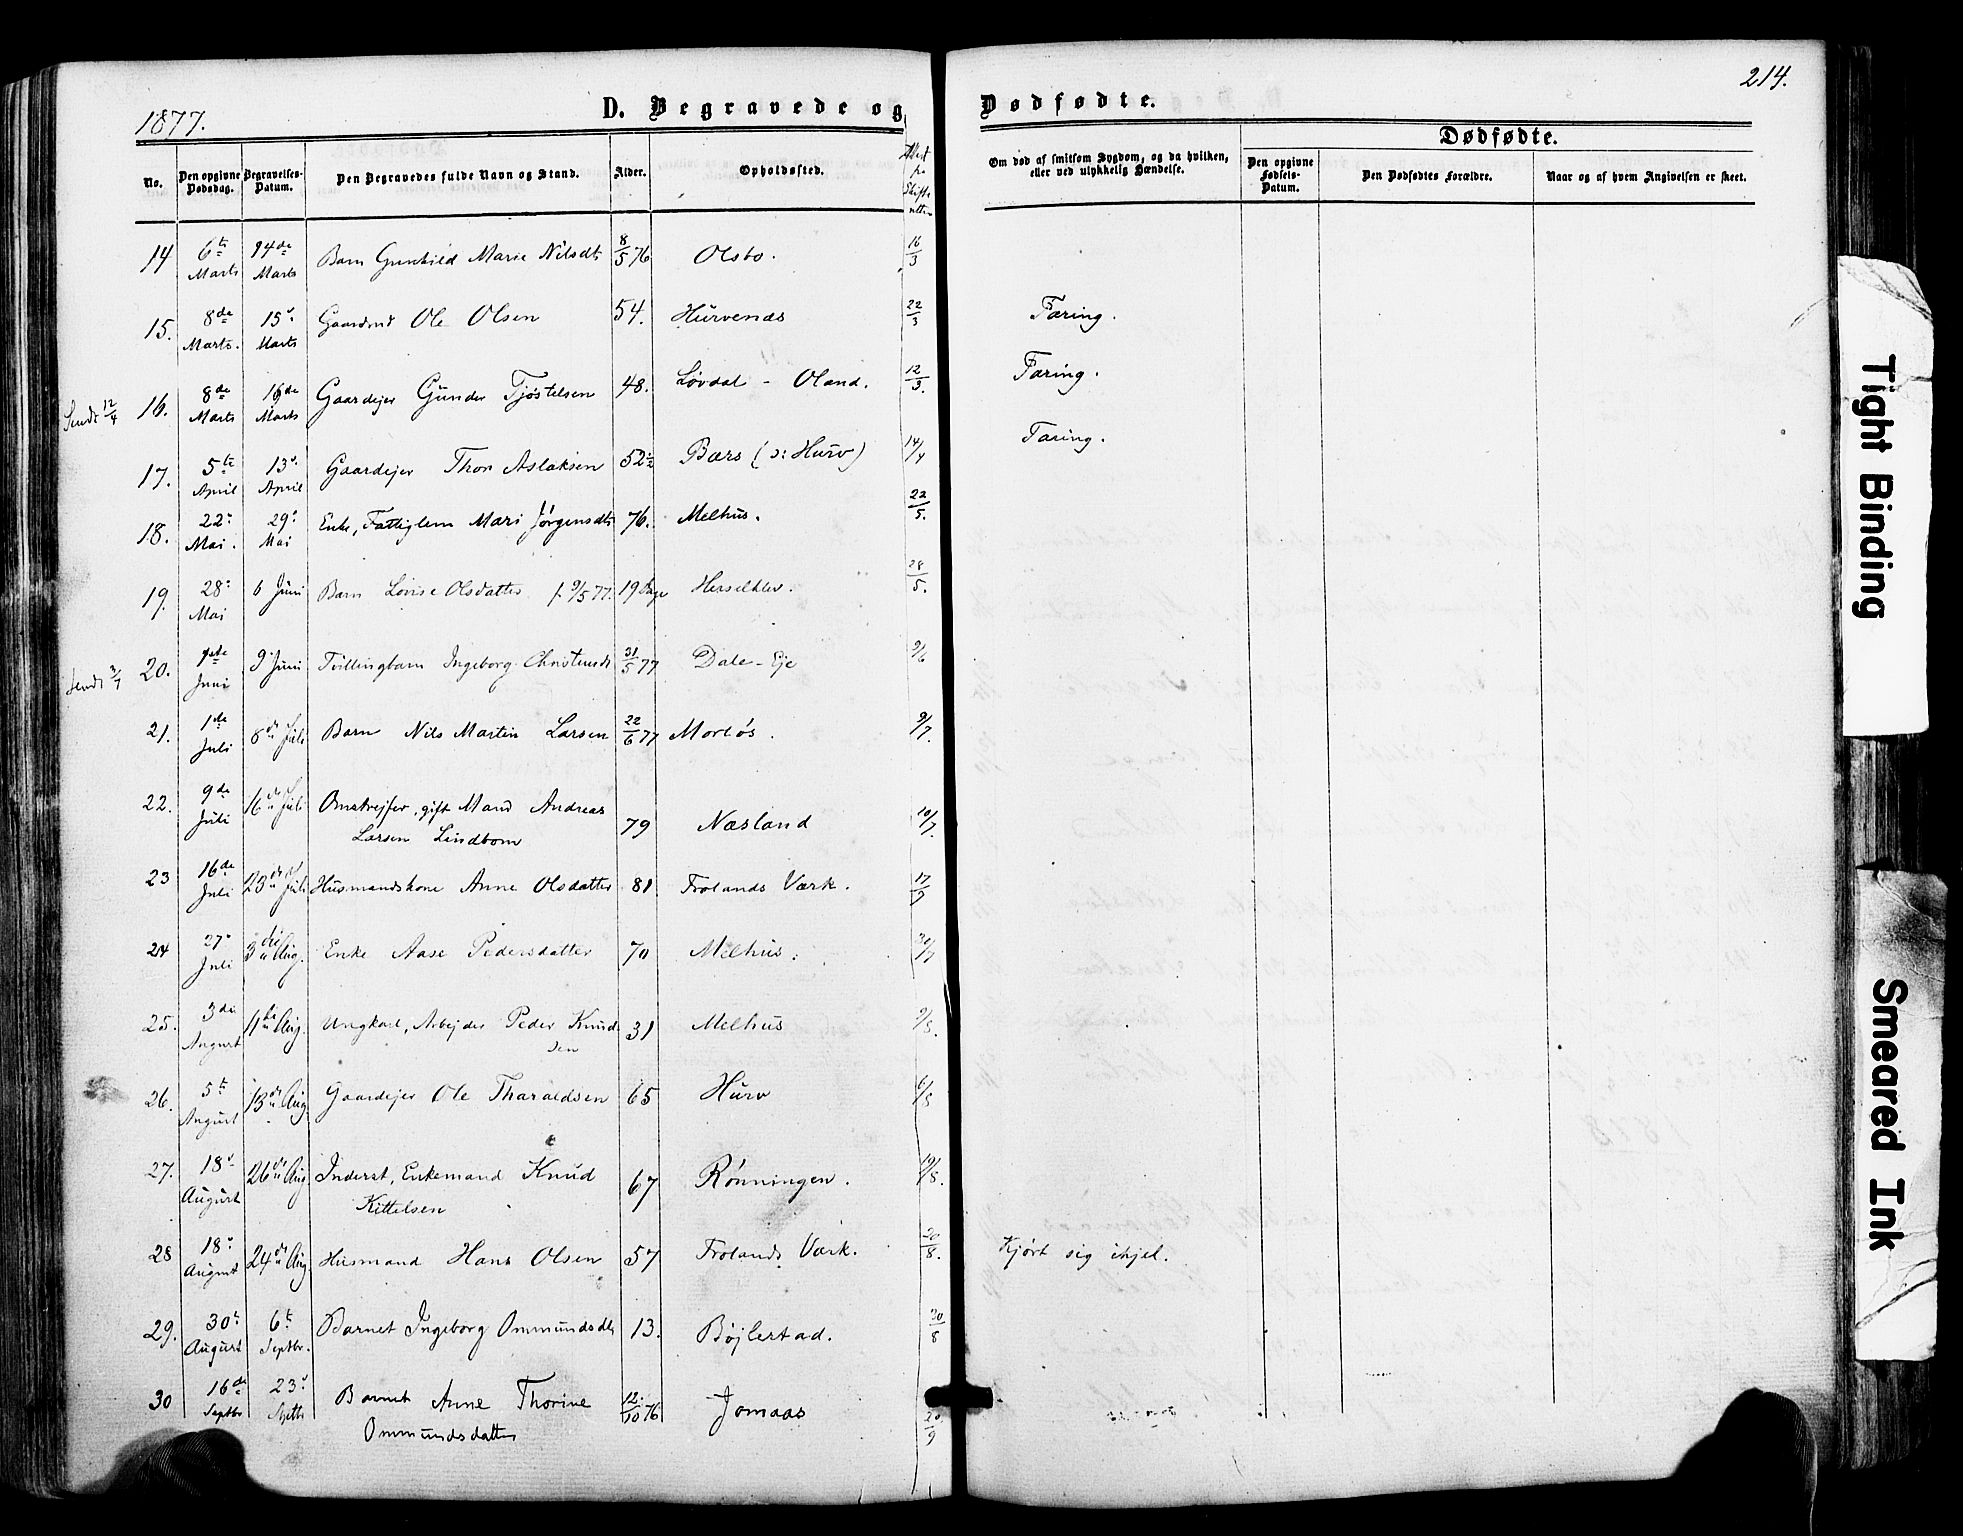 214.
1877.
D. Begravede og Dødfødte.
Dødfødte.
No.
Den opgivne Dødsdag.
Begravelses-Datum.
Den Begravedes fulde Navn og Stand.
Alder.
Opholdssted.
Om død af smitsom Sygdom, og da hvilken, eller ved ulykkelig Hændelse.
Den opgivne Fødsels-Datum.
Den Dødfødtes Forældre.
Naar og af hvem Angivelsen er skeet.
14 6te Marts 14de Marts Barn Gunhild Marie Nilsdt 8/5 76 Olsbo. 16/3
15. 8de Marts. 15d Marts Gaardmd Ole Olsen 54. Hurvenæs 22/3 Tæring.
Sendt 12/4 16. 8de Marts 16de Marts Gaardejer Gunder Tjøstelsen 48. Løvdal - Oland. 12/3. Tæring.
17. 5te April 13d April Gaardejer Thor Aslaksen 52½ Bærs (ɔ: Hurv) 14/4 Tæring.
18. 22d Mai. 29d Mai Enke, Fattiglem Mari Jørgensdtr 76. Melhus. 22/5.
19. 28d Mai 6 Juni Barn Lovise Olsdatter f. 9/5 77. 19 Dage Herselhlev. 28/5.
Sendt 3/7 20. Juni 9d Juni Tvillingbarn Ingeborg 31/5 77 Dale-Eje 9/6
21. 1de Juli 8de Juli Barn Nils Martin Larsen 22/6 77 Morløs. 9/7.
22. 9de Juli 16de Juli Omstrejfer, gift Mand Andreas
Larsen Lindbom 79 Næsland 10/7.
23 16de Juli 23de Juli Husmandskone Anne Olsdatter 81 Frolands Værk. 17/7
24 27d Juli 3die Aug. Enke Aase Pedersdatter 70 Melhus. 30/7
25. 3die August 11te Aug. Ungkarl, Arbejder Peder Knud
sen 31 Melhus 9/8.
26. 5te August 13de Aug Gaardejer Ole Tharaldsen 65 Hurv 6/8
27. 18d August 26de Aug Inderst, Enkemand Knud
Kittelsen 67 Rønningen. 19/8.
28 18d August 24de Aug Husmand Hans Olsen 57 Frolands Værk. 20/8. Kjørt sig ihjel.
29. 30te August 6te Septbr. Barnet Ingeborg Ommundsdtr 13. Bøjlestad. 30/8
30 16de Septbr 23d Septbr Barnet Anne Thorine
Ommundsdatter 12/10 76 Jomaas 20/9
Tight Binding
Smeared Ink